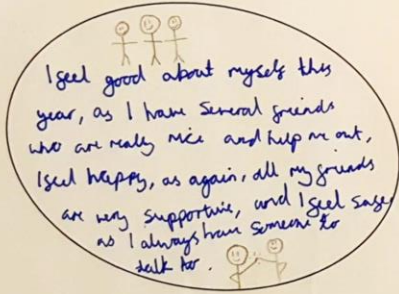 I feel good about myself this
year, as I have several friends
who are really nice and help me out,
I feel happy, as again, all my friends
are very supportive, and I feel safe
as I always have someone to
talk to.